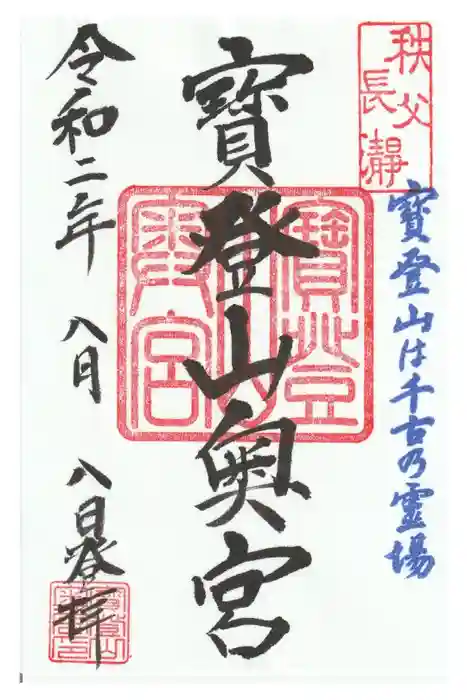 秩父
長瀞
寶登山は千古乃霊場
寶登山奥宮
寶登山奥宮
令和二年 八月 八日登拝